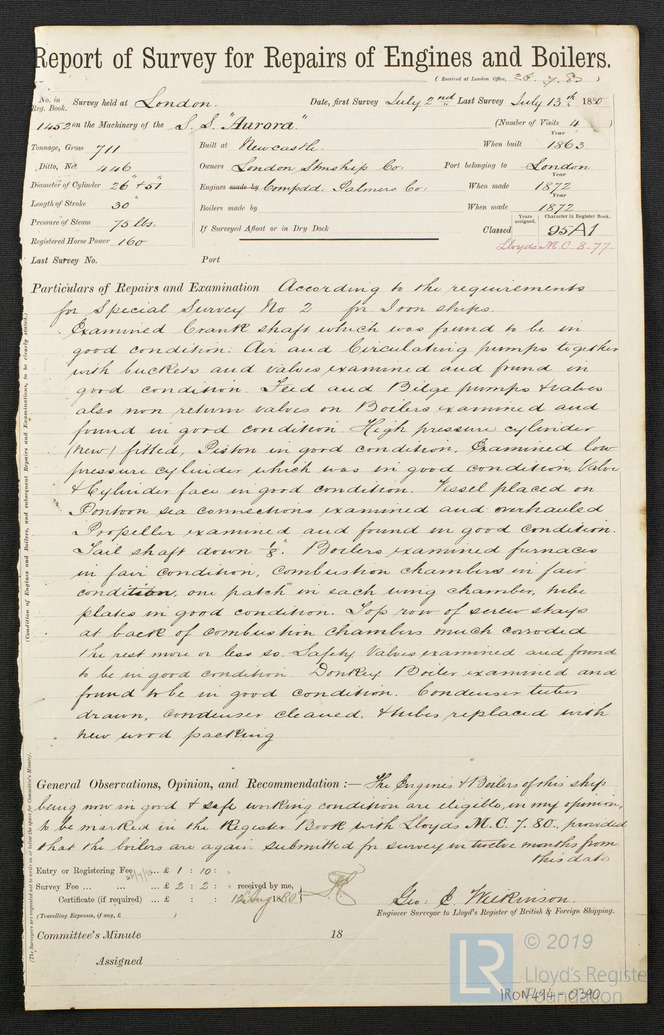 Report of Survey for Repairs of Engines and Boilers.
(Received at London Office, 26. 7. 80)
No. in Reg. Book. Survey held at London. Date, first Survey July 2nd Last Survey July 13th 1880
1452 on the Machinery of the S.S. "Aurora" (Number of Visits 4)
Tonnage, Gross 711 Built at Newcastle When built Year 1863
Ditto, Net 446 Owners London Stmship Co. Port belonging to London
Diameter of Cylinder 26" + 51" Engines made by Compdd. Palmers Co. When made Year 1872
Length of Stroke 30" Boilers made by When made Year 1872
Pressure of Steam 75 lbs. If Surveyed Afloat or in Dry Dock Classed Years assigned. Character in Register Book. 95A1
Registered Horse Power 160 Lloyds M.C. 8.77.
Last Survey No. Port
Particulars of Repairs and Examination According to the requirements
for Special Survey No 2 for Iron ships.
Examined Crank shaft which was found to be in
good condition. Air and Circulating pumps together
with buckets and valves examined and found in
good condition. Feed and Bilge pumps & valves
also non return valves on Boilers examined and
found in good condition. High pressure cylinder
(new) fitted, Piston in good condition, Examined low
pressure cylinder which was in good condition, Valve
& Cylinder face in good condition. Vessel placed on
Pontoon sea connections examined and overhauled
Propeller examined and found in good condition.
Tail shaft down 1/8". Boilers examined furnaces
in fair condition, combustion chambers in fair
condition, one patch in each wing chamber, tube
plates in good condition. Top row of screw stays
at back of combustion chambers much corroded
the rest more or less so. Safety Valves examined and found
to be in good condition. Donkey Boiler examined and
found to be in good condition. Condenser tubes
drawn, condenser cleaned, & tubes replaced with
new wood packing
(Condition of Engines and Boilers, and subsequent Repairs and Examinations, to be clearly stated.)
General Observations, Opinion, and Recommendation :— The Engines & Boilers of this ship
being now in good & safe working condition are eligible, in my opinion,
to be marked in the Register Book with Lloyds M.C. 7.80., provided
that the boilers are again submitted for survey in twelve months from
this date
(The Surveyors are requested not to write on or below the space for Committee's Minute).
Entry or Registering Fee £ 1 : 10 :
Survey Fee ... ... ... £ 2 : 2 : received by me,
Certificate (if required) ... £ : : 12 Aug 1880
(Travelling Expenses, if any, £ )
Geo: C Wilkinson.
Engineer Surveyor to Lloyd's Register of British & Foreign Shipping.
Committee's Minute 18
Assigned
LR © 2019
Lloyd's Register
Foundation
IRON494-0390